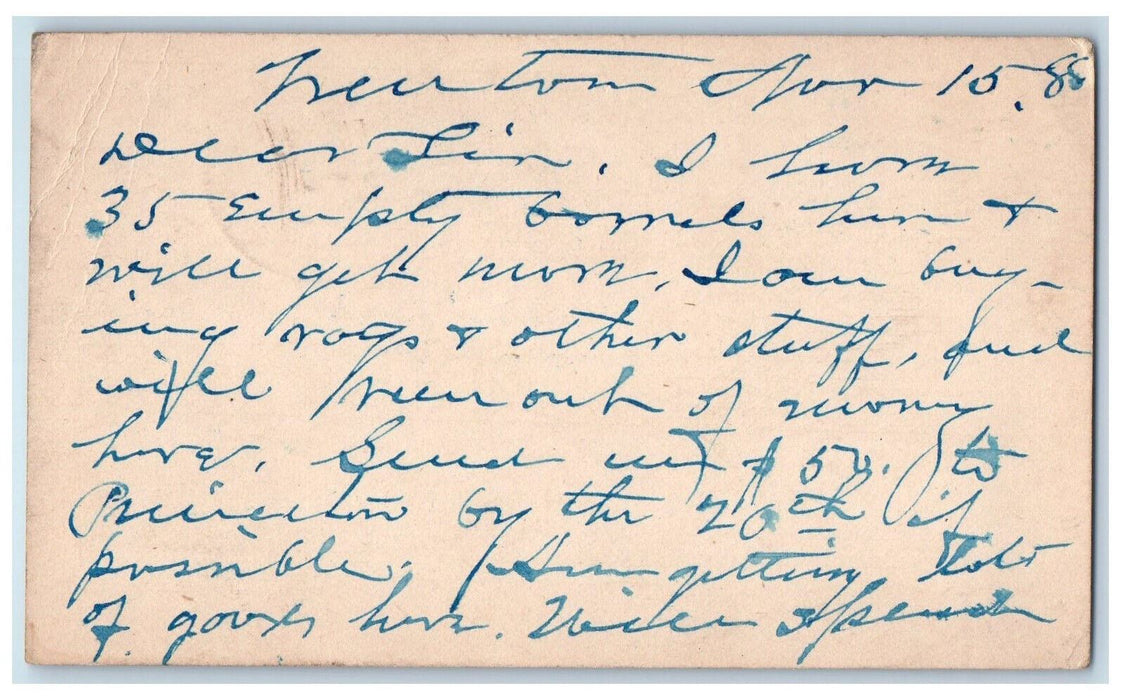 Newton Nov 15, 88
Dear Sir, I have
35 Empty barrels here &
will get more, I am buy-
ing rags & other stuff, and
will run out of money
here. Send me $50. to
Princeton by the 20th if
possible. Am getting lots
of goods here. Will spend